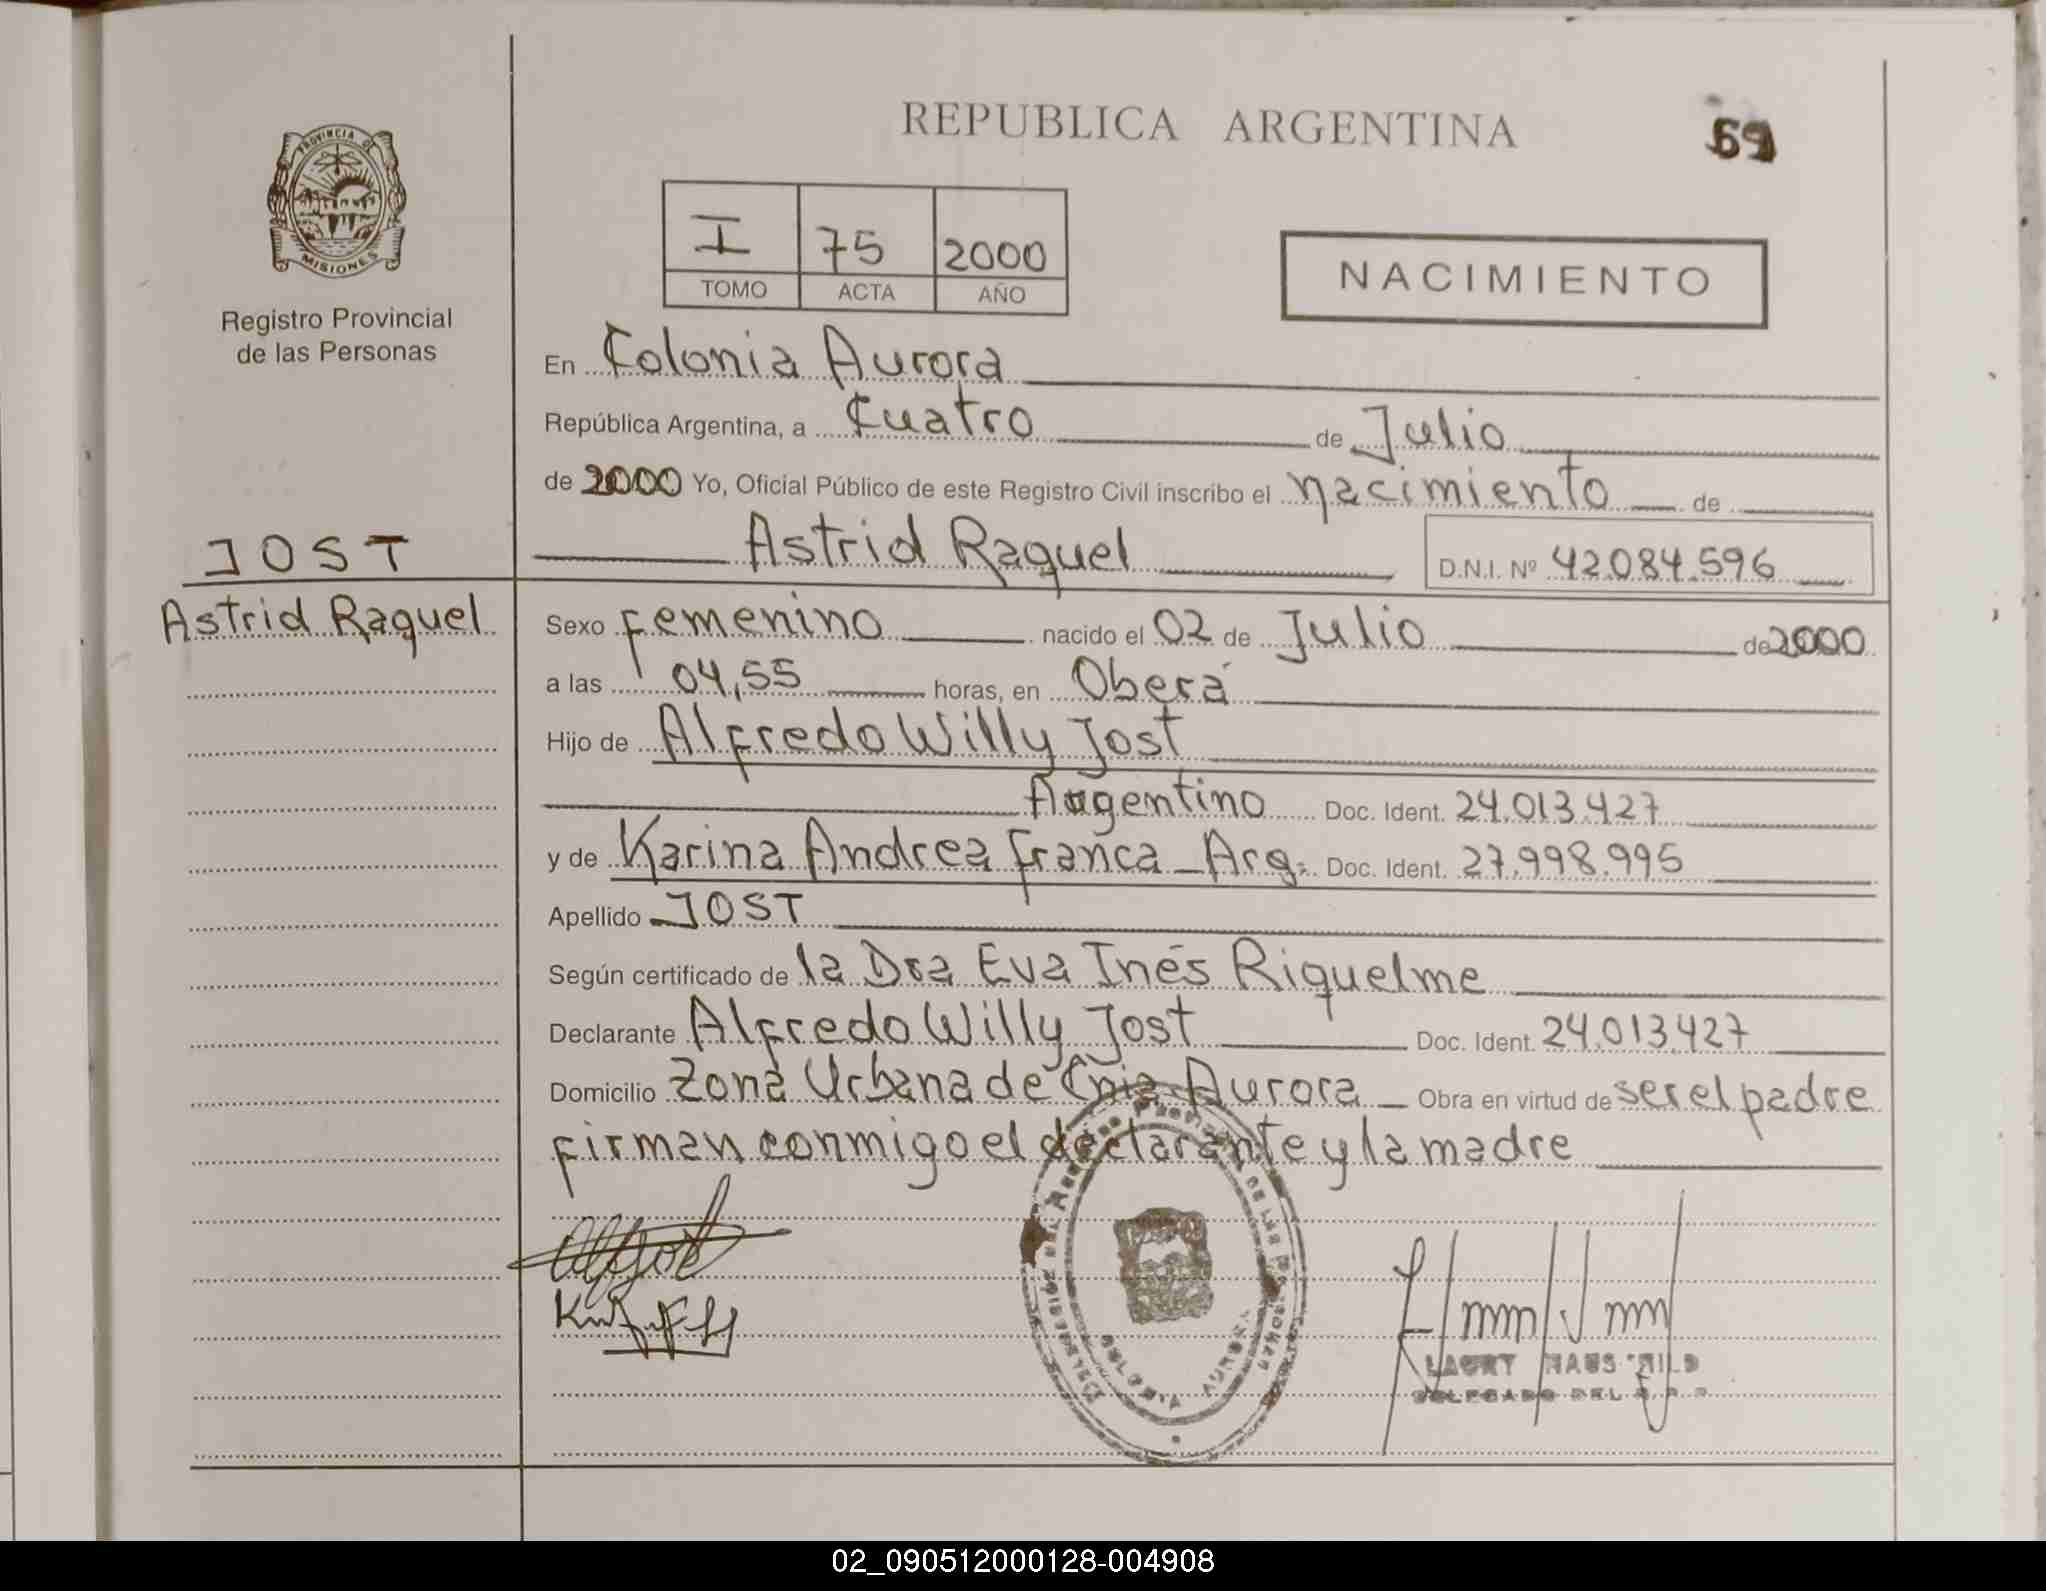 REPUBLICA ARGENTINA
69
PROVINCIA DE
MISIONES
Registro Provincial
de las Personas
I 75 2000
TOMO ACTA AÑO
NACIMIENTO
En Colonia Aurora
República Argentina, a Cuatro de Julio
de 2000 Yo, Oficial Público de este Registro Civil inscribo el nacimiento de
JOST
Astrid Raquel
Astrid Raquel D.N.I. Nº 42.084.596
Sexo Femenino nacido el 02 de Julio de 2000
a las 04,55 horas, en Oberá
Hijo de Alfredo Willy Jost
Argentino Doc. Ident. 24.013.427
y de Karina Andrea Franca - Arg. Doc. Ident. 27.998.995
Apellido JOST
Según certificado de la Dra Eva Inés Riquelme
Declarante Alfredo Willy Jost Doc. Ident. 24.013.427
Domicilio Zona Urbana de Cnia Aurora - Obra en virtud de ser el padre
firman conmigo el declarante y la madre
DELEGADO DEL R. P. P.
02_090512000128-004908